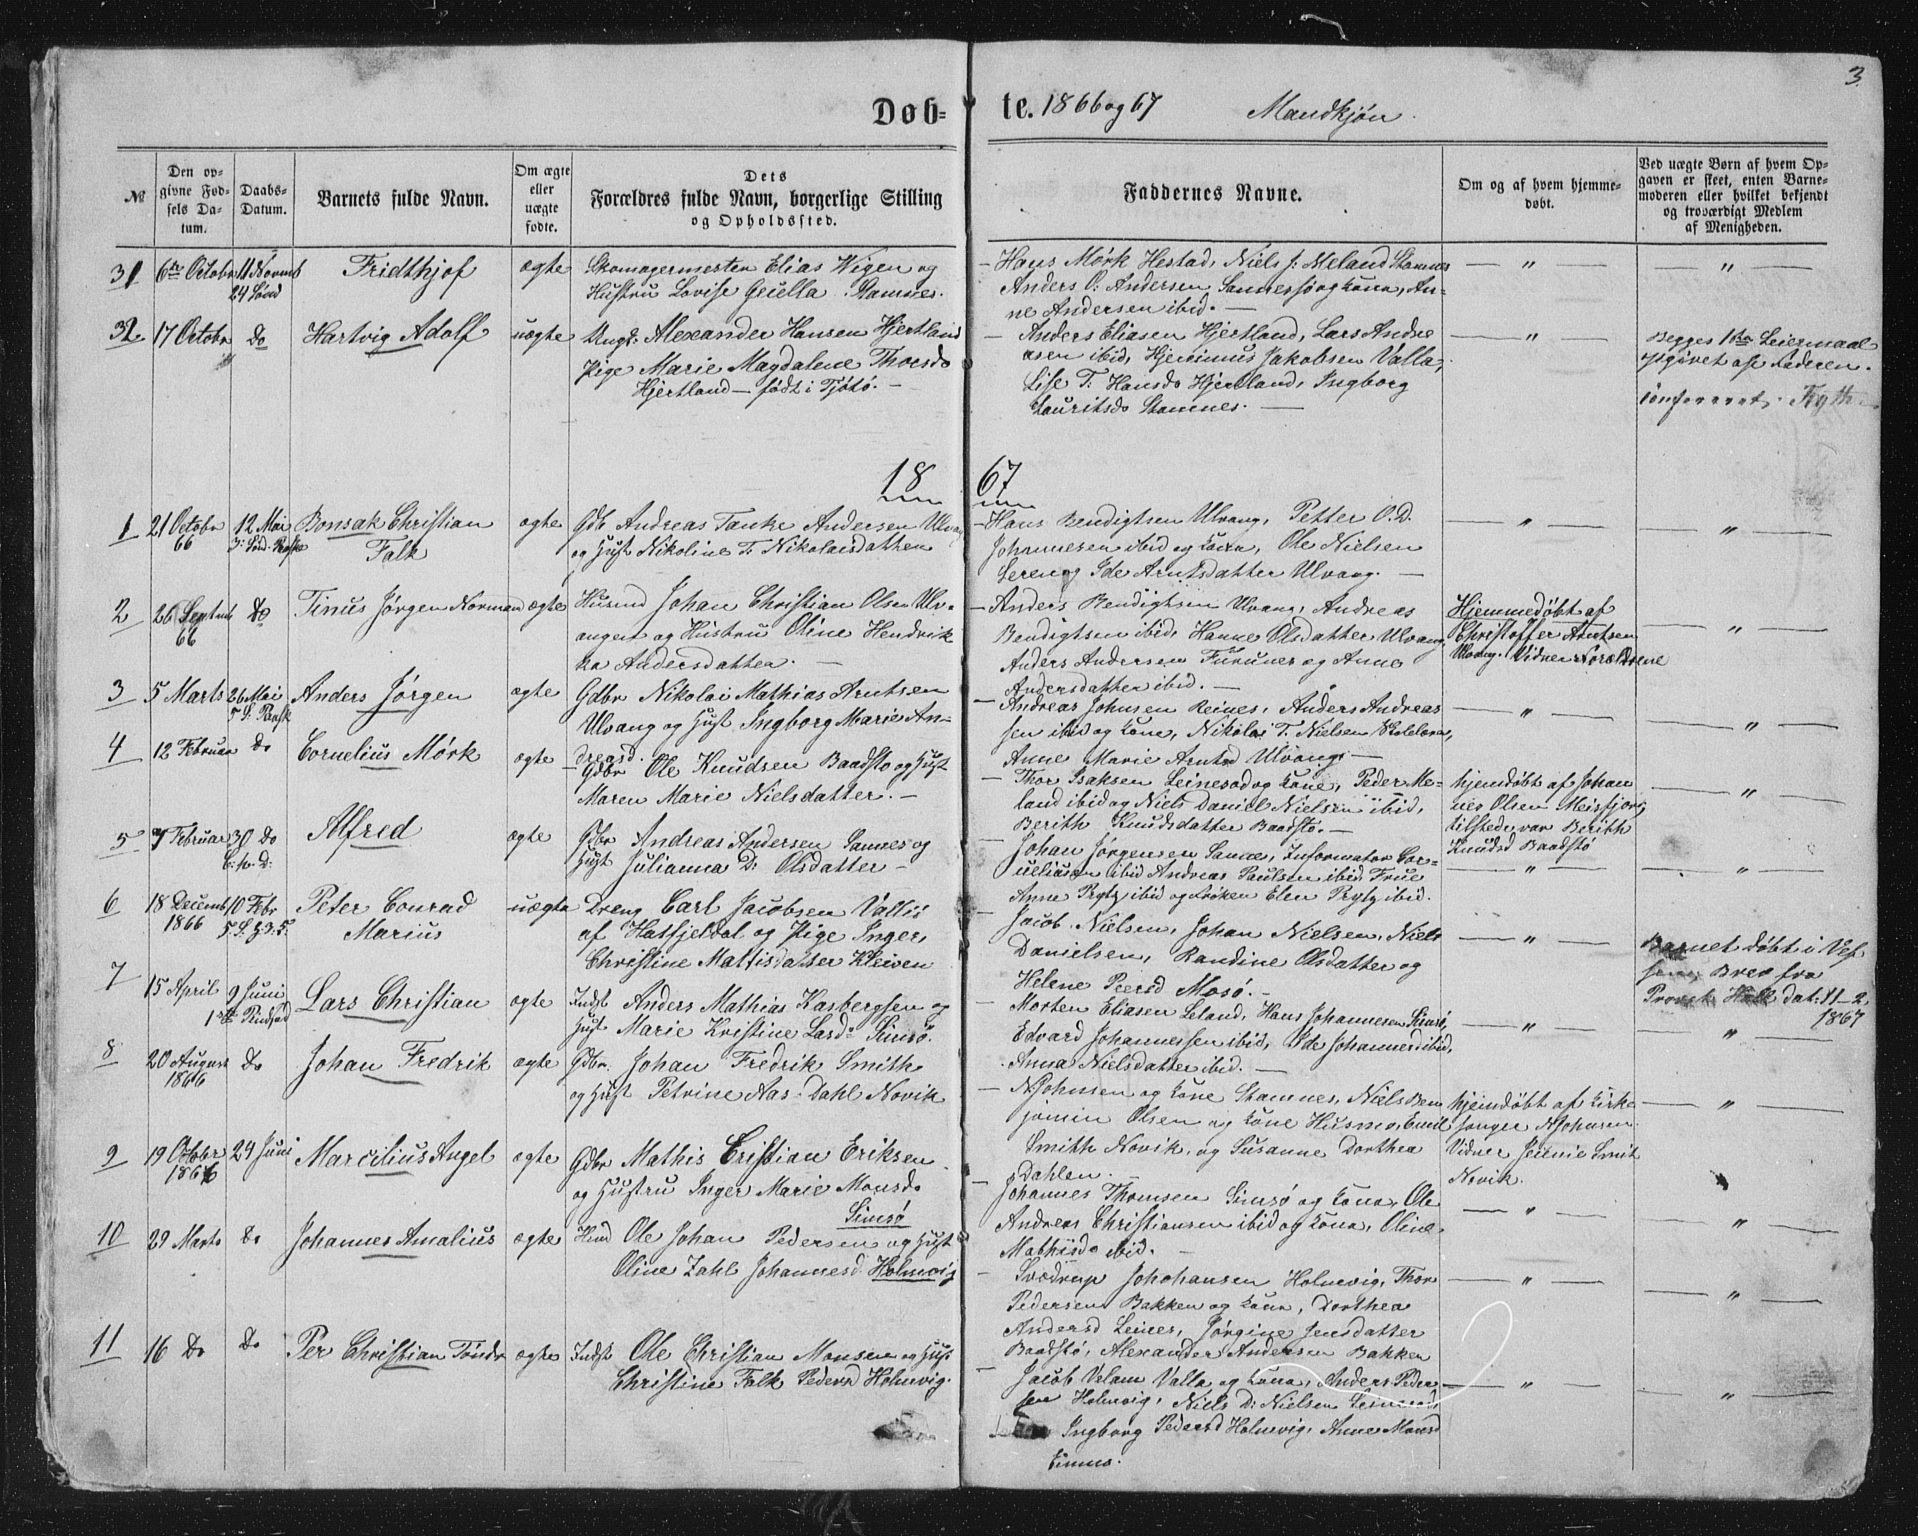 3.
Døb-
te. 1866 og 67 Mandkjøn.
№
Den op-
givne Fød-
sels Da-
tum.
Daabs-
Datum.
Barnets fulde Navn.
Om ægte
eller
uægte
fødte.
Dets
Forældres fulde Navn, borgerlige Stilling
og Opholdssted.
Faddernes Navne.
Om og af hvem hjemme-
døbt.
Ved uægte Børn af hvem Op-
gaven er skeet, enten Barne-
moderen eller hvilket bekjendt
og troværdigt Medlem
af Menigheden.
31 6te Octobr 11 Novmb
24 Sønd
Fridthjof
ægte
Skomagermester Elias Wigen og
Hustru Lovise Stamnes.
— Hans Mørk Hestad, Niels J. Meland Stamnes
Anders O. Andersen Sannessjø og kone, An-
ne Andersen ibid. —
— „ —
— „ —
32 17 Octobr do
Hartvig Adolf
uægte
Ungk. Alexander Hansen Hjertland
Pige Marie Magdalene Thorsd.
Hjertland — født i Tjøtø. —
— Anders Eliasen Hjertland, Lars Andre
asen ibid, Hjeronimus Jakobsen Valla,
Lise T. Hansd. Hjertland, Ingborg
Lauritsd. Stamnes. —
— „ —
Begges 1ste Leiermaal
opgivet af Faderen.
18 67
1 21 Octobr
66
12 Mai
3. Sønd. Paaske
Bonsak Christian
Falk
ægte
Gdb Andreas Tanke Andersen Ulvang
og Hust Nikoline T. Nikolaisdatter
— Hans Bendigtsen Ulvang, Petter O. D.
Johannesen ibid og kone, Ole Nielsen
og Ide Arntsdatter Ulvang. —
— „ —
„
2 26 Septmb
66
do
Tinus Jørgen Norman
ægte
Husmd Johan Christian Olsen Ulv-
angen og Hustru Oline Hendrik
ka Andersdatter. —
— Anders Bendigtsen Ulvang, Andreas
Bendigtsen ibid, Hanne Olsdatter Ulvang,
Anders Andersen Furunes og Anne
Andersdatter ibid. —
Hjemmedøbt af
Christoffer Arntsen
Ulvang. Vidner Forældrene
— „ —
3 5 Marts 26 Mai
5 S. Paask
Anders Jørgen
ægte
Gdbr Nikolai Mathias Arntsen
Ulvang og Hust Ingborg Marie An-
dreasd.
— Andreas Johnsen Reines, Anders Andreas
sen ibid og kone, Nikolai T. Nielsen
Anne Marie Arntsd Ulvang. —
— „ —
— „ —
4 12 Februar do
Cornelius Mørk
ægte
Gdbr Ole Knudsen Baadstø og Hust
Maren Marie Nielsdatter. —
— Thor Isaksen Leinesod og kone, Peder Me-
land ibid og Niels Daniel Nielsen ibid,
Berith Knudsdatter Baadstø. —
hjemdøbt af Johan
nes Olsen Meisfjord,
tilstede var Berith
Knudsd Baadstø
— „ —
5 7 Februar 30 do
Alfred
ægte
Gbr Andreas Andersen Sannes og
Hust Julianna D: Olsdatter —
— Johan Jørgensen Sannes, Informator Cor-
neliusen ibid Andreas Paulsen ibid, Frue
Anne Prytz ibid og Frøken Elen Prytz ibid.
— „ —
— „ —
6 18 Decemb
1866
10 Febr
Peter Conrad
Marius
uægte
Dreng Carl Jacobsen Vallis
af Hatfjeldal og Pige Inger
Christine Mattisdatter Kleiven
— Jacob Nielsen, Johan Nielsen, Niels
Danielsen, Randine Olsdatter og
Helene Peersd Mosø. —
— „ —
Barnet døbt i Vef
sen. Brev fra
Provst dat: 11-2
1867
7 15 April 9 Juni
1ste Pindsed
Lars Christian
ægte
Indst Anders Mathias Kasbergsen og
Hust Marie Kristine Larsd. Simsø.
— Morten Eliasen Leland, Hans Johannesen Simsø,
Edvard Johannessen ibid, Ide Johannesd ibid,
Anna Nielsdatter ibid. —
— „ —
— „ —
8 20 August
1866
do
Johan Fredrik
ægte
Gdbr. Johan Fredrik Smith
og Hust Petrine Aas-Dahl Novik
— N Johnsen og kone Stamnes, Niels Ben
jamin Olsen og kone Husmo, Emil
Smith Novik, og Susanne Dorthea
Dahlen.
hjemdøbt af Kirke
sanger N Johnsen.
Vidner Jennie Smit
Novik.
— „ —
9 19 Octobr
1866
24 Juni
Marcilius Angel
ægte
Gdbr Mathis Cristian Eriksen
og Hustru Inger Marie Monsd.
Simsø
— Johannes Thomsen Simsø og kone, Ole
Andreas Christiansen ibid og kone, Oline
Mathisd. ibid. —
— „ —
— „ —
10 29 Marts do
Johannes Amalius
ægte
Hmd Ole Johan Pedersen og Hust
Oline Zahl Johannesd. Holmvig
— Sverdrup Johansen Holmvig, Thor
Pedersen Bakken og kone, Dorthea
Andersd Leines, Jørgine Jensdatter
Baadstø, Alexander Andersen Bakken
— „ —
— „ —
11 16 do do
Per Christian Tønder
ægte
Indst Ole Christian Monsen og Hust
Christine Falk Pedersd Holmvig.
— Jacob Velam Valla og kone, Anders Peder
sen Holmvig, Niels D: Nielsen
Ingborg Pedersd Holmvig, Anne Monsd
— „ —
— „ —